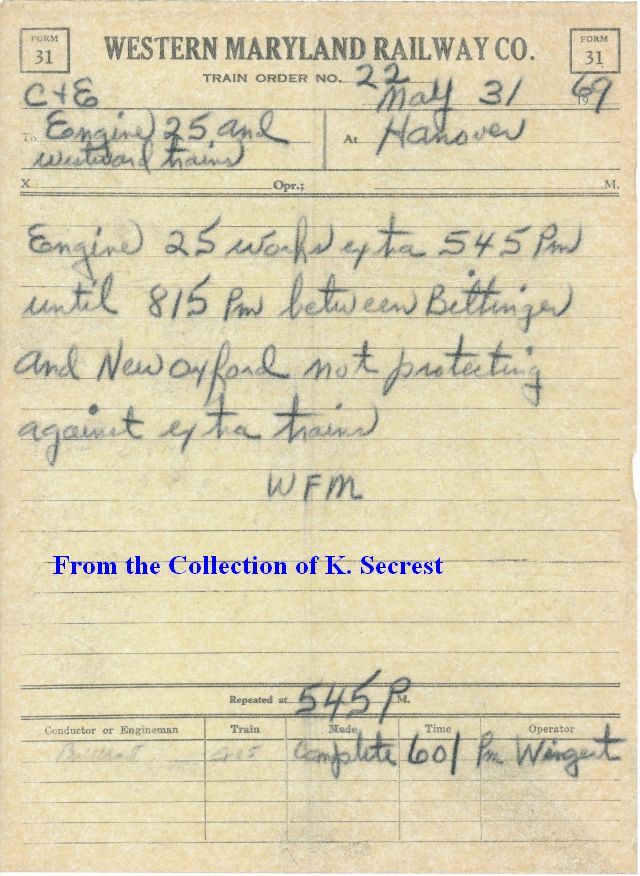 FORM 31
WESTERN MARYLAND RAILWAY CO.
FORM 31
TRAIN ORDER NO. 22
C+E May 31 1969
To Eengine 25 and At Hanover
westward trains
X Opr.; M.
Eengine 25 works extra 545 Pm
until 815 Pm between Bittinger
and New oxford not protecting
against extra trains
WFM
From the Collection of K. Secrest
Repeated at 545 P M.
Conductor or Engineman Train Made Time Operator
Complete 601 Pm Wingert